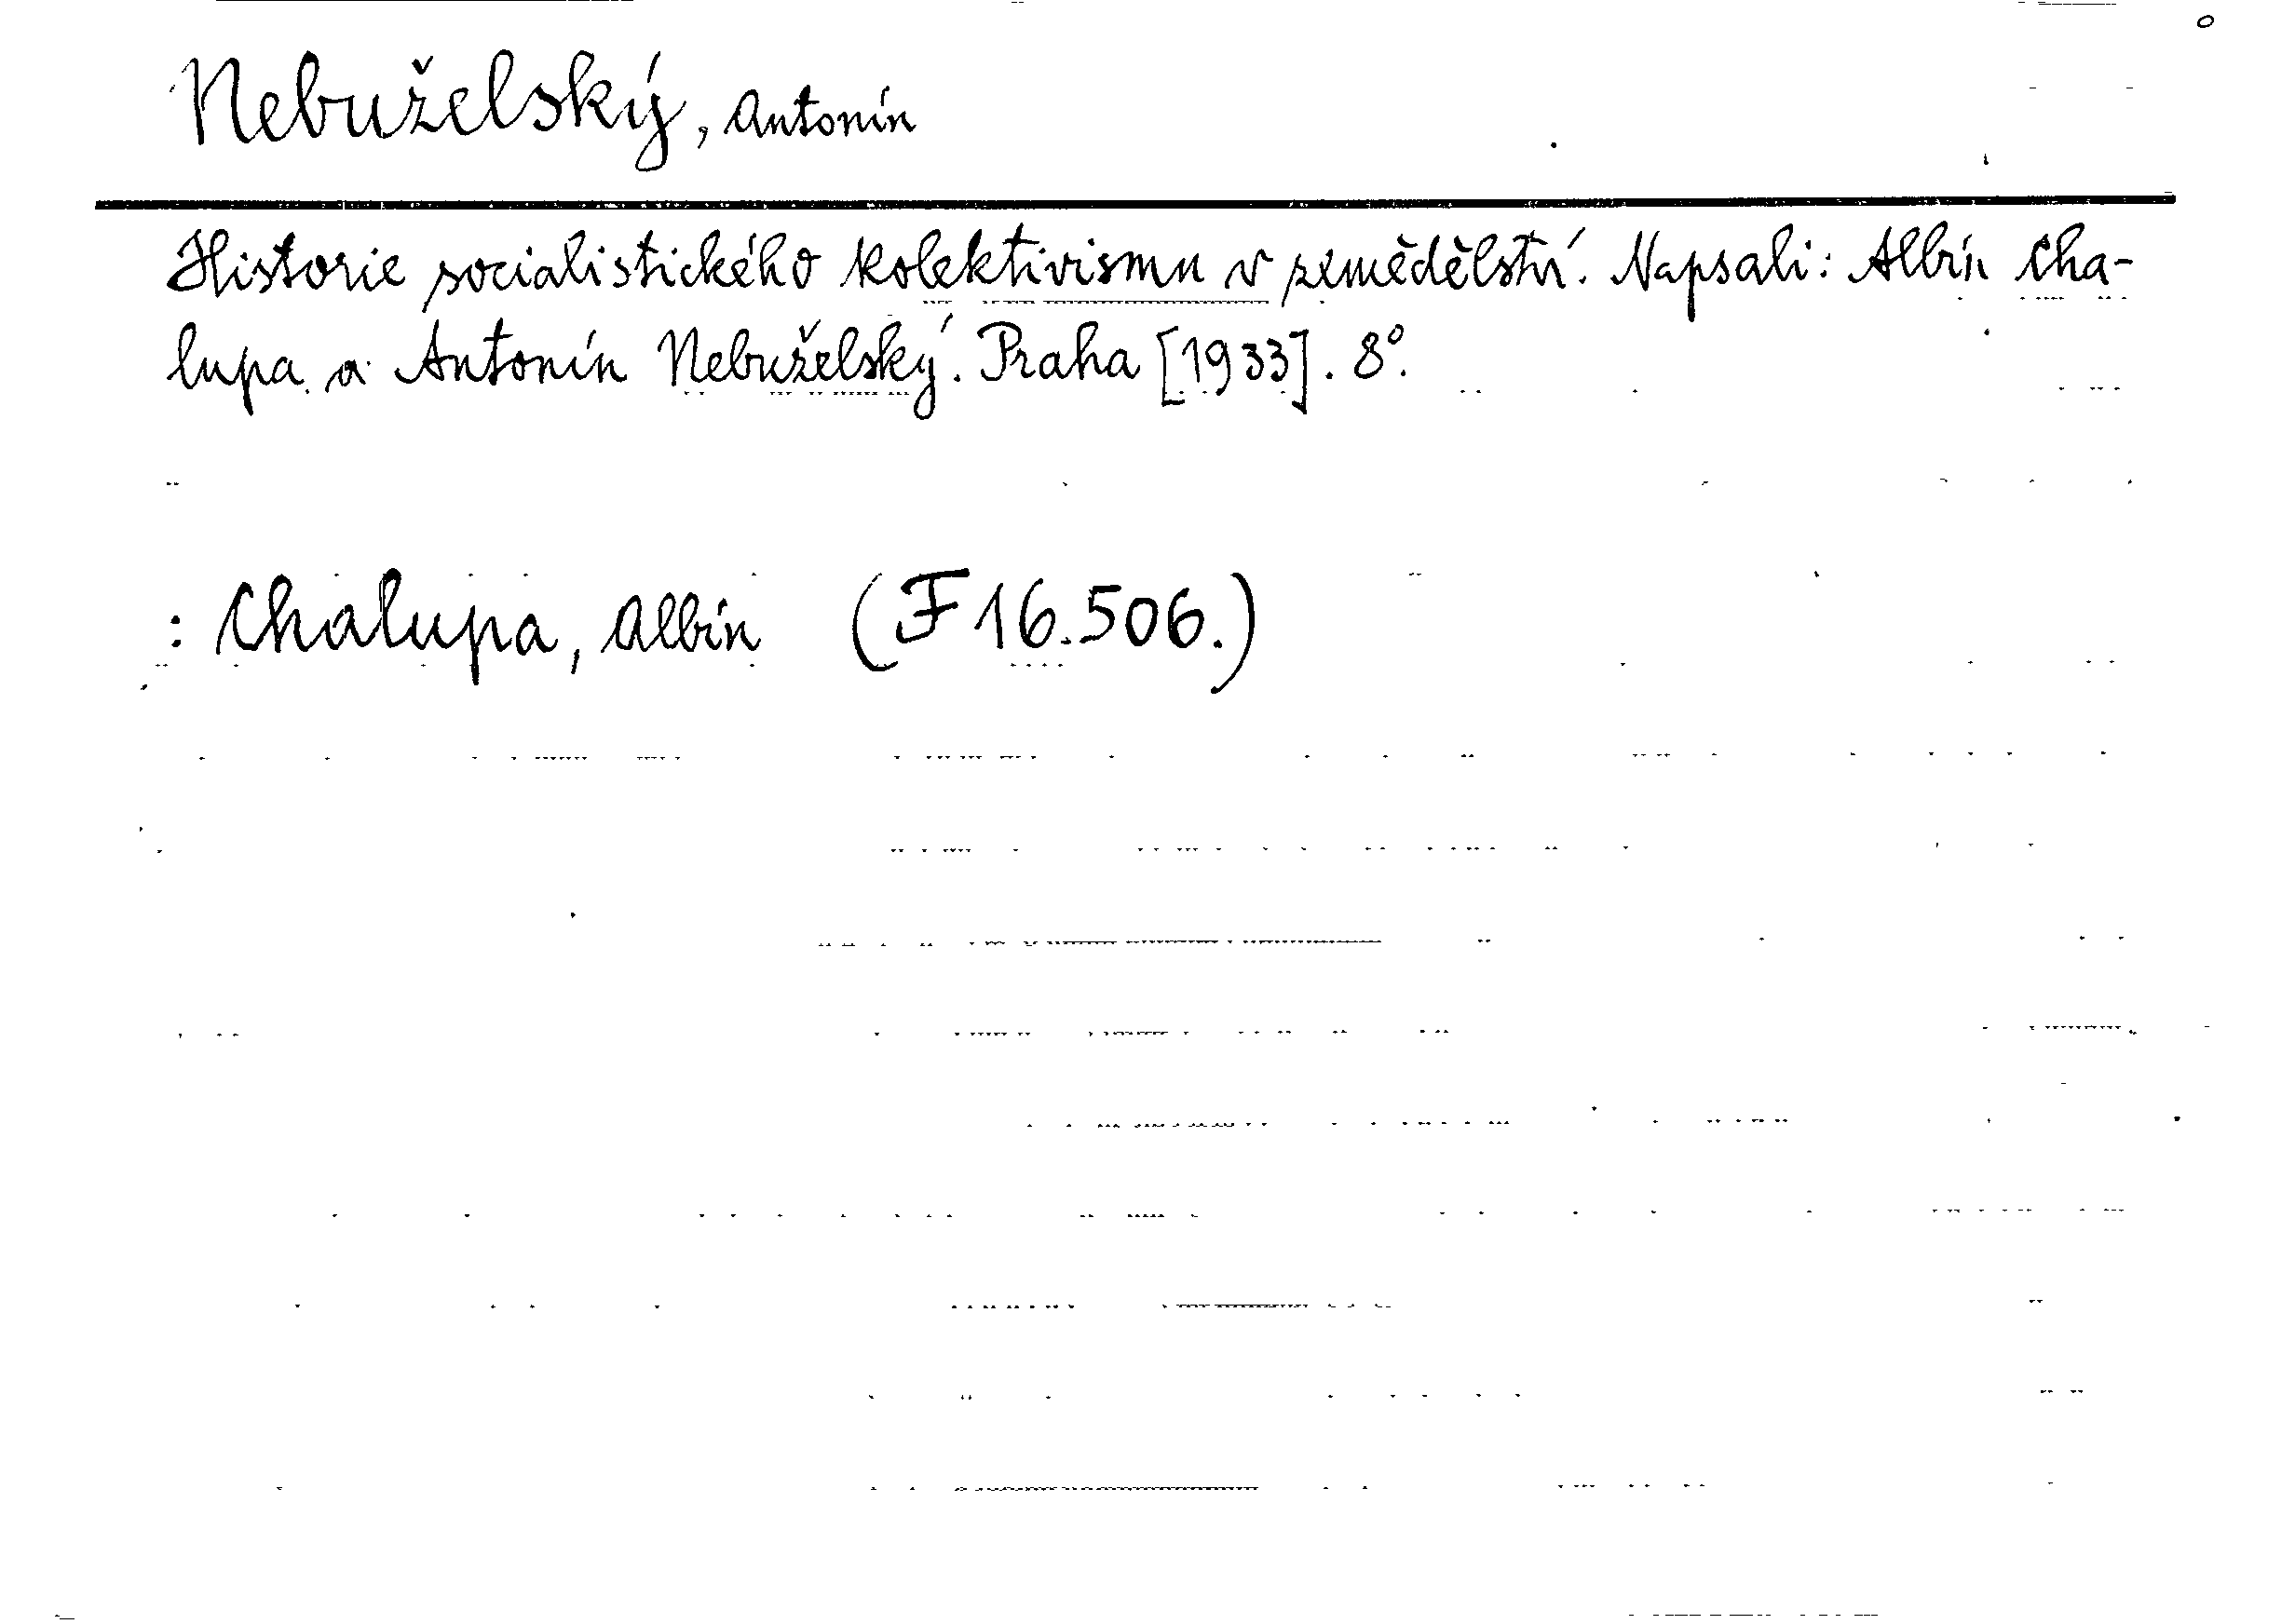 Nebuželský, Antonín
Historie socialistického kolektivismu v zemědělství. Napsali: Albín Cha-
lupa a Antonín Nebuželský. Praha [1933]. 8°.
: Chalupa, Albín (F 16.506.)